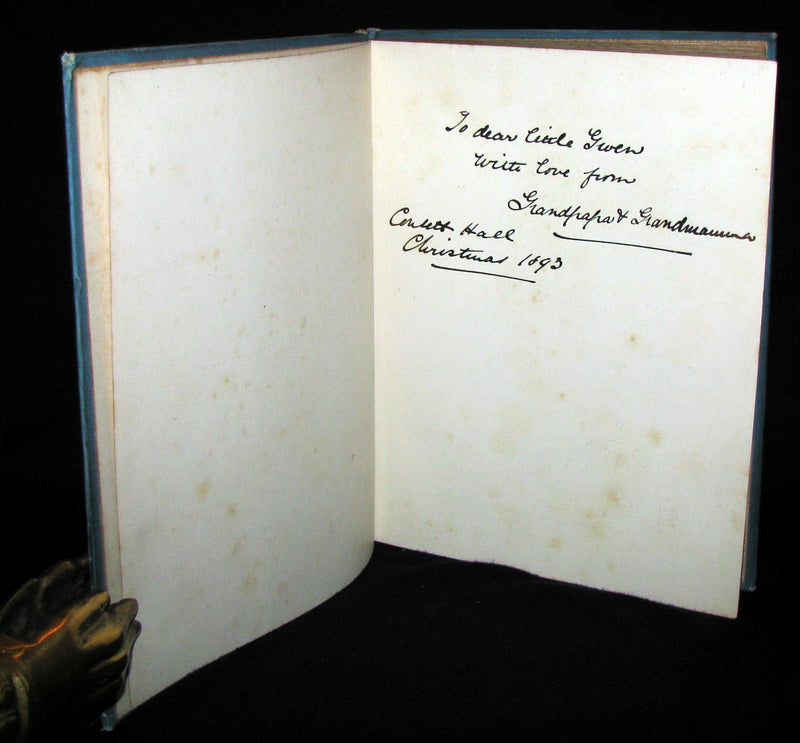 To dear little Gwen
With love from
Grandpapa & Grandmamma
Consett Hall
Christmas 1893